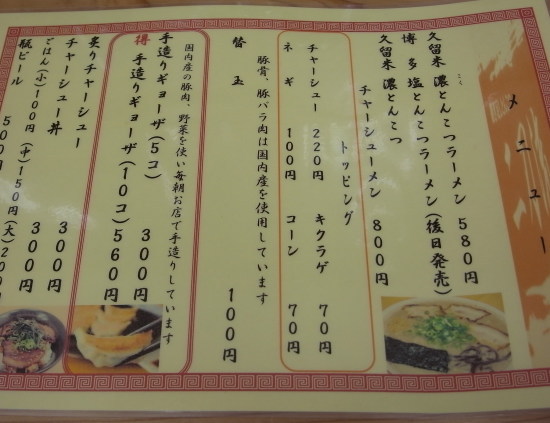 メニュー
久留米 濃とんこつラーメン 580円
こく
博多 塩とんこつラーメン(後日発売)
久留米 濃とんこつ
チャーシューメン 800円
トッピング
チャーシュー 220円 キクラゲ 70円
ネギ 100円 コーン 70円
豚骨、豚バラ肉は国内産を使用しています
替玉 100円
国内産の豚肉、野菜を使い毎朝お店で手造りしています
手造りギョーザ(5コ) 300円
得 手造りギョーザ(10コ) 560円
炙りチャーシュー
チャーシュー丼 300円
ごはん(小)100円(中)150円(大)200
瓶ビール 500円
300円